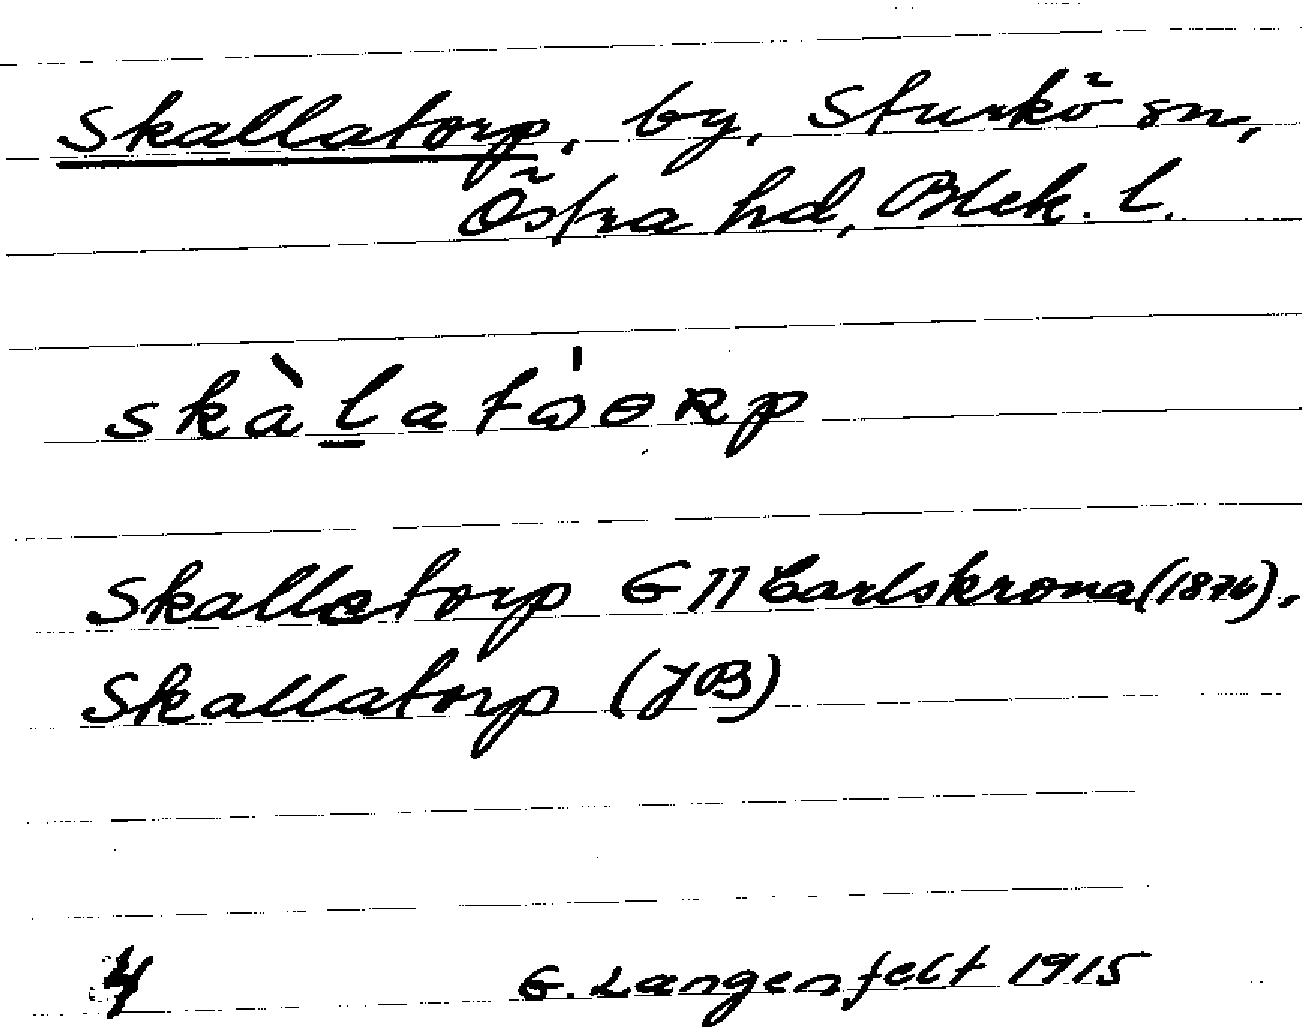 Skallatorp, by, Sturkö sn,
Östra hd, Blek. l.
skàl̲atɷ̍ɵʀp
Skalletorp G II Carlskrona (1876),
Skallatorp (JB)
4
G. Langenfelt 1915